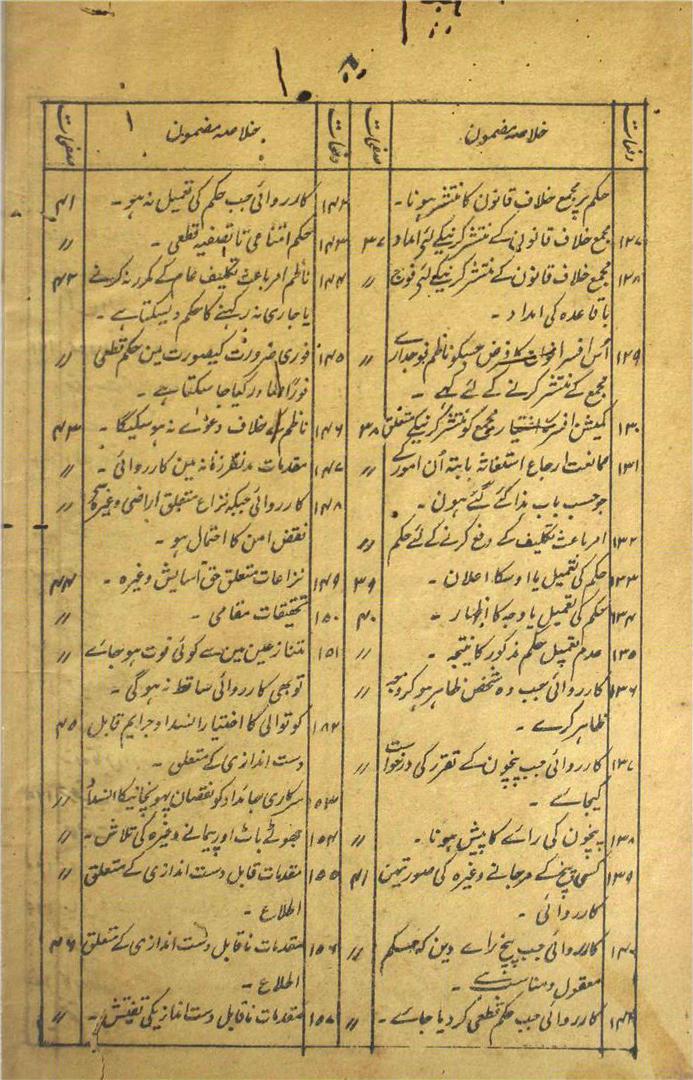 ۸
دفعات خلاصہ مضمون صفحات
حکم پر مجمع خلاف قانون کا منتشر ہونا۔
۱۲۷ مجمع خلاف قانونی کے منتشر کرنیکے لئے امداد ۳۷
۱۲۸ مجمع خلاف قانون کے منتشر کرنیکے لئے فوج 〃
باقاعدہ کی امداد۔
۱۲۹ اُس افسر فوج کا فرض جسکو ناظم فوجداری 〃
مجمع کے منتشر کرنے کے لئے کہے۔
۱۳۰ کمیشن افسر مجمع کو منتشر کرنیکے متعلق ۳۸
۱۳۱ ممانعت ارجاع استغاثہ بابتہ اُن امور کے 〃
جو حسب باب ہذا کئے گئے ہون۔
۱۳۲ امر باعث تکلیف کے دفع کرنے کے لئے حکم 〃
۱۳۳ حکم کی تعمیل یا اوسکا اعلان۔ ۳۹
۱۳۴ حکم کی تعمیل یا وجہ کا اظہار۔ ۴۰
۱۳۵ عدم تعمیل حکم مذکور کا نتیجہ۔ 〃
۱۳۶ کارروائی جب وہ شخص ظاہر ہو کر وجہ 〃
ظاہر کرے۔
۱۳۷ کارروائی جب پنچون کے تقرر کی درخواست 〃
کیجاے۔
۱۳۸ پنچون کی راے کا پیش ہونا۔ 〃
۱۳۹ کسی پنچ کے مرجانے وغیرہ کی صورتمین ۴۱
کارروائی۔
۱۴۰ کارروائی جب پنچ راے دین کہ حکم 〃
معقول و مناسب ہے۔
۱۴۱ کارروائی جب حکم قطعی کر دیا جاے۔ 〃
دفعات خلاصہ مضمون صفحات
۱۴۲ کارروائی جب حکم کی تعمیل نہ ہو۔ ۴۱
۱۴۳ حکم امتناعی تا تصفیہ قطعی۔ 〃
۱۴۴ ناظم امر باعث تکلیف عام کے مکرر نہ کرنے ۴۲
یا جاری نہ رکہنے کا حکم دیسکتا ہے۔
۱۴۵ فوری ضرورت کیصورت مین حکم قطعی 〃
فوراً صادر کیا جا سکتا ہے۔
۱۴۶ ناظم کے خلاف دعوٰے نہ ہو سکیگا۔ ۴۳
۱۴۷ مقدمات مدنظر زمانہ مین کارروائی۔ 〃
۱۴۸ کارروائی جبکہ نزاع متعلق اراضی وغیرہ سے 〃
نقض امن کا احتمال ہو۔
۱۴۹ نزاعات متعلق حق آسایش وغیرہ۔ ۴۴
۱۵۰ تحقیقات مقامی۔ 〃
۱۵۱ متنازعین مین سے کوئی فوت ہو جاے 〃
تو بھی کارروائی ساقط نہ ہوگی۔
۱۵۲ کوتوالی کا اختیار انسداد جرایم قابل ۴۵
دست اندازی کے متعلق۔
۱۵۳ سرکاری جائداد کو نقصان پہونچانیکا انسداد 〃
۱۵۴ جھوٹے باٹ اور پیمانے وغیرہ کی تلاش۔ 〃
۱۵۵ مقدمات قابل دست اندازی کے متعلق 〃
اطلاع۔
۱۵۶ مقدمات ناقابل دست اندازی کے متعلق ۴۶
اطلاع۔
۱۵۷ مقدمات ناقابل دست اندازیکی تفتیش۔ 〃